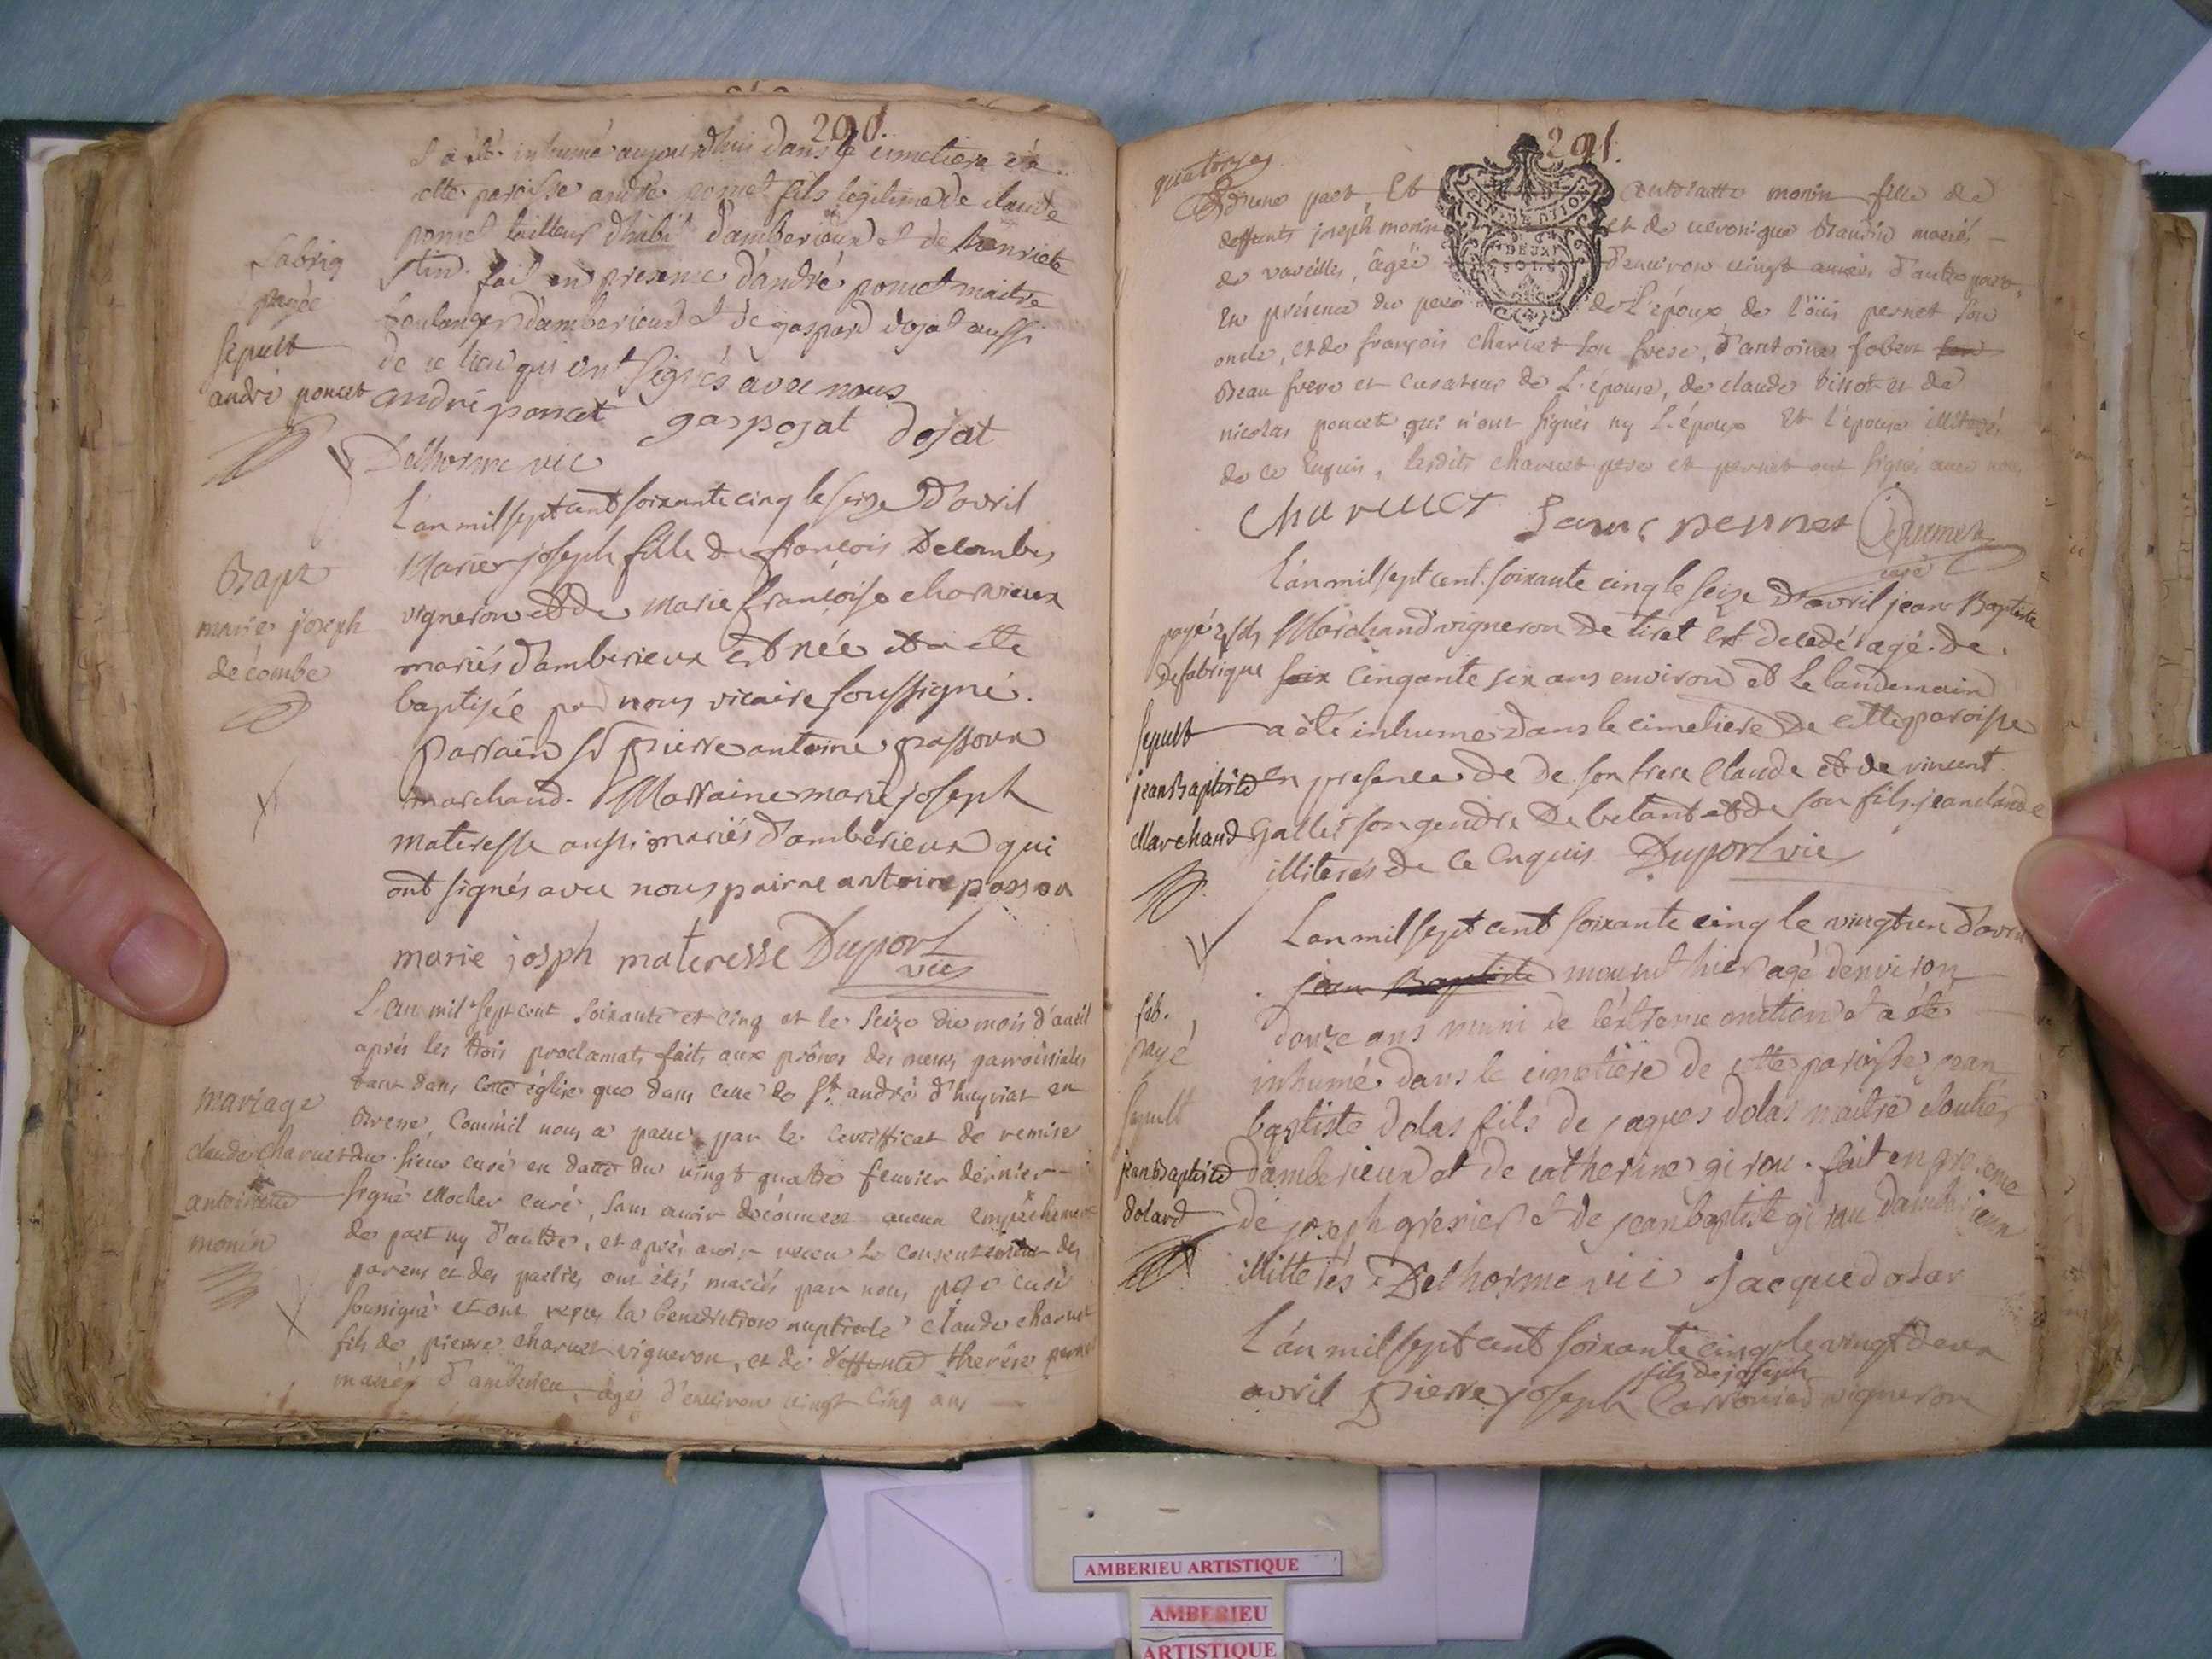 290.
a été inhumé aujourd'huy dans le cimetiere de
cette paroisse andré poncet fils legitime de claude
poncet tailleur d'habit d'amberieux et de henriete
fait en presence d'andré poncet maitre
boulanger d'amberieux et de gaspard dojat aussi
de ce lieu qui ont signés avec nous
andré poncet gaspojat dojat
Delhorme vic
fabriq
payée
sepult
andré poncet
L'an mil sept cent soixante cinq le seize d'avril
Marie joseph fille de françois Decombes
vigneron et de marie françoise charvieux
mariés d'amberieux est née et a été
baptisée par nous vicaire soussigné.
parrain sr pierre antoine passoua
marchand. Marraine marie joseph
materesse aussi mariés d'amberieux qui
ont signés avec nous pairre antoine
marie josph materesse Duport
vic
Bapt
marie joseph
decombe
L'an mil sept cent soixante et cinq et le seize du mois d'avril
aprés les trois proclamats faits aux prônes des messes parroissiales
tant dans cette église que dans celle de St. andré d'huyriat en
Bresse, Comme il nous a paru par le Certifficat de remise
du sieur curé en datte du vingt quatre fevrier dernier
signé Mocher curé, sans avoir découvert aucun empêchement
de part ny d'autre, et aprés avoir receu le consentement des
parens et des parties ont étés mariés par nous curé
soussigné et ont reçu la benediction nuptiale claude charvet
fils de pierre charvet vigneron, et de deffunte therése pernet
mariés d'amberieu, âgé d'environ vingt cinq ans
mariage
claude charvet
antoinette
monin
291.
quatorze
D'une part, Et antoinette monin fille de
deffunts joseph monin et de veronique Baudin mariés
de vareilles, âgée d'environ vingt années d'autre part,
En présence du pere de L'époux de loüis pernet son
oncle, et de françois charvet son frere, d'antoine fobert son
Beau frere et curateur de L'épouse, de claude Tissot et de
nicolas poncet qui n'ont signés ny L'époux Et L'épouse illiterés
de ce Enquis, lesdits charvet pere et pernet ont signés avec nous
charvet pernet
curé
L'an mil sept cent soixante cinq le seize d'avril jean Baptiste
Marchand vigneron de tiret est decedé agé de
soix cinqante six ans environ et le landemain
a été inhumé dans le cimetiere de cette paroisse
en presence de de son frere Claude et de vincent
Gallet son gendre de betant et de son fils jean claude
illiterés de ce enquis Duport vic
payé 2 sols
de fabrique
sepult
jean Baptiste
Marchand
L'an mil sept cent soixante cinq le vingt un d'avril
jean Baptiste mourut hier agé d'environ
douze ans muni de l'éxtreme onction et a été
inhumé dans le cimetière de cette paroisse jean
baptiste dolas fils de jaques dolas maitre cloutier
d'amberieux et de catherine girou. fait en presence
de joseph grenier et de jean baptiste girou d'amberieux
illitterés Delhorme vic Jacque dolar
fab.
payé
sepult
jean Baptiste
dolard
L'an mil sept cent soixante cinq le vingt deux
fils de joseph
avril pierre joseph vigneron
AMBERIEU ARTISTIQUE
AMBERIEU
ARTISTIQUE